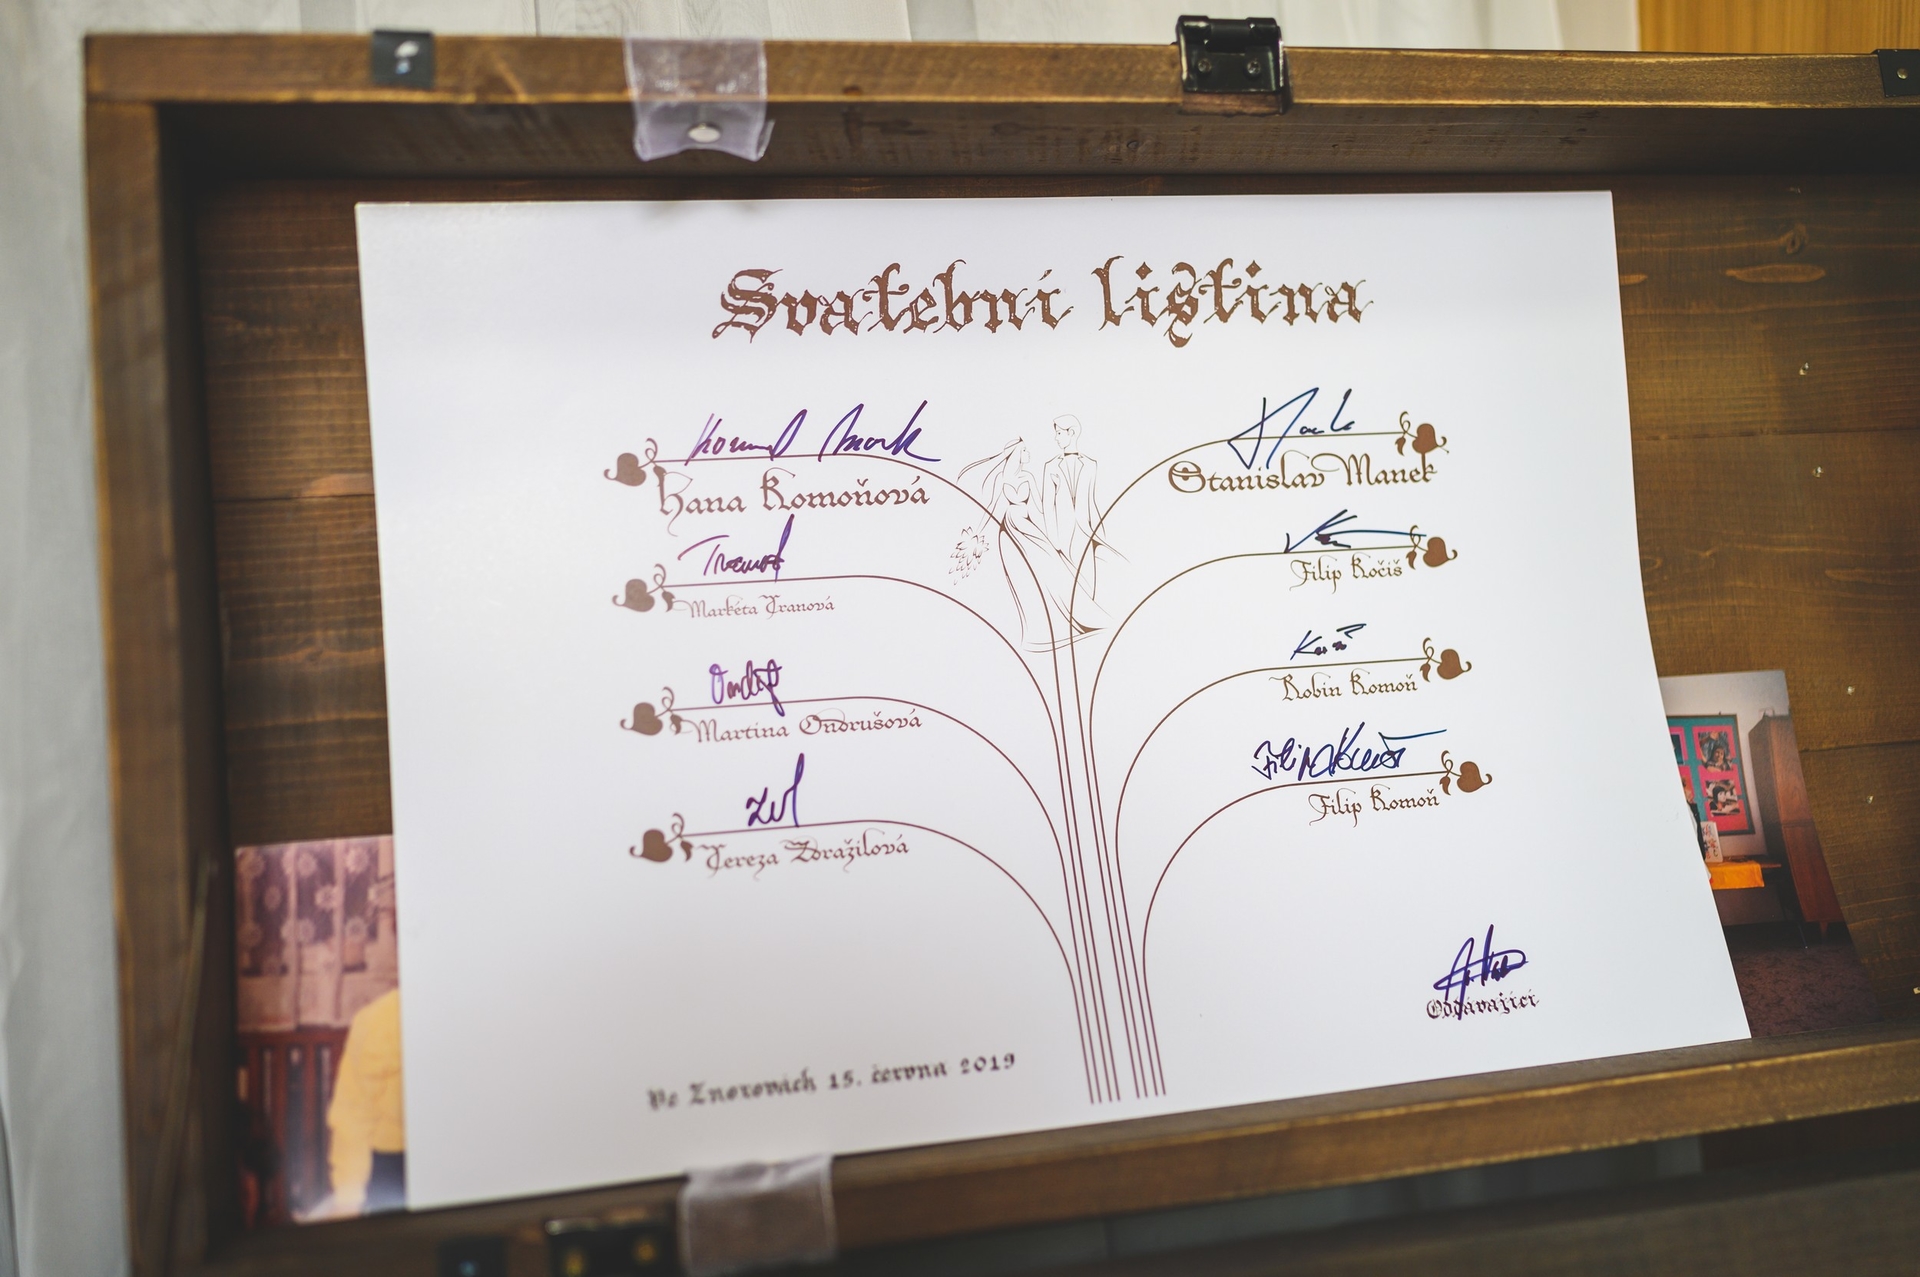 Svatební listina
Hana Komoňová
Stanislav Manek
Markéta Tranová
Filip Kočiš
Martina Ondrušová
Robin Komoň
Tereza Zdražilová
Filip Komoň
Oddávající
Ve Znorovách 15. června 2019